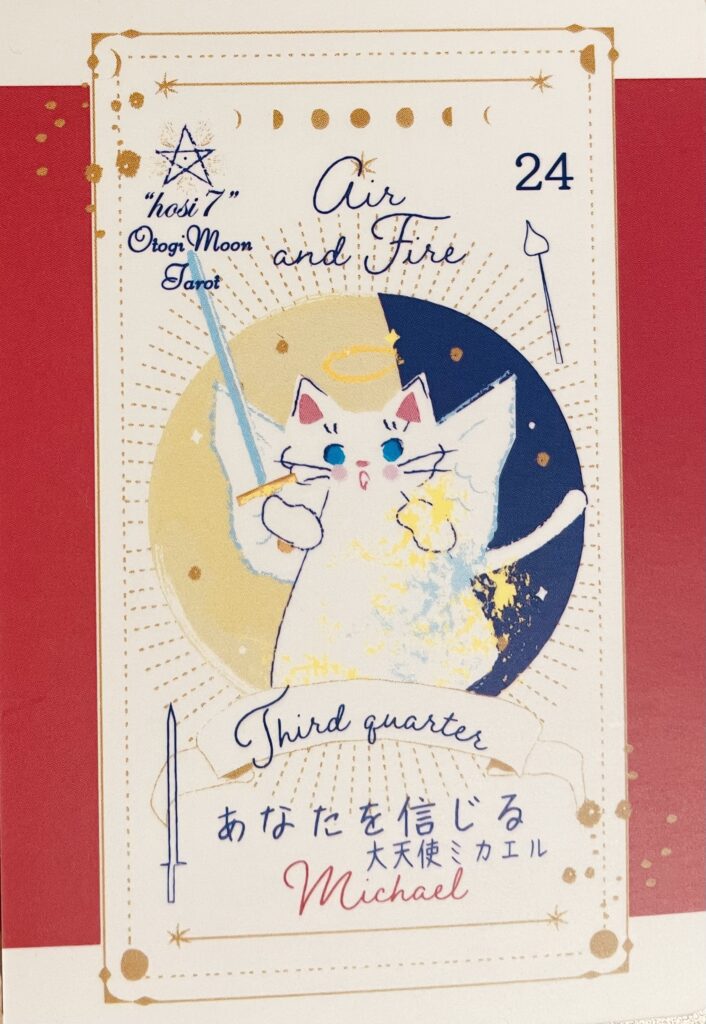 "hosi 7"
Otogi Moon
Tarot
Air
and Fire
24
Third quarter
あなたを信じる
大天使ミカエル
Michael